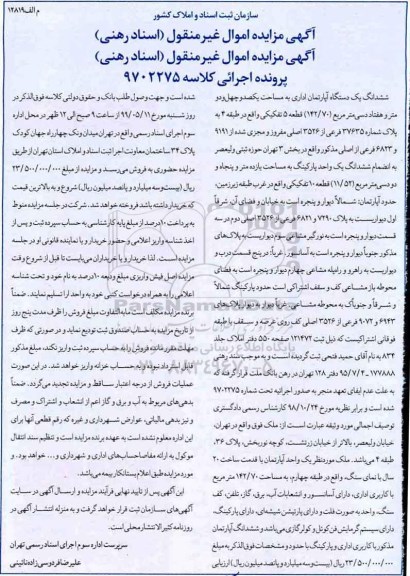 م الف ۱۲۸۱۹
سازمان ثبت اسناد و املاک کشور
آگهی مزایده اموال غیرمنقول (اسناد رهنی)
آگهی مزایده اموال غیرمنقول (اسناد رهنی)
پرونده اجرائی کلاسه ۹۷۰۲۲۷۵
ششدانگ یک دستگاه آپارتمان اداری به مساحت یکصد و چهل و دو
متر و هفتاد دسی متر مربع (۱۴۲/۷۰) قطعه ۵ تفکیکی واقع در طبقه ۴ به
پلاک شماره ۳۷۶۳۵ فرعی از ۳۵۲۶ اصلی مفروز و مجزی شده از ۹۱۹۱
و ۶۸۲۳ فرعی از اصلی مذکور واقع در بخش ۳ تهران حوزه ثبتی ولیعصر
به انضمام ششدانگ یک واحد پارکینگ به مساحت یازده متر و پنجاه و
دو دسی متر مربع (۱۱/۵۲) قطعه ۱۰ تفکیکی واقع در غرب طبقه زیرزمین.
حدود آپارتمان: شمالاً دیوار و پنجره است به خیابان و فضای آن شرقاً
اول دیواریست به پلاک ۷۲۹۰ و ۶۸۲۱ فرعی از ۳۵۲۶ اصلی دوم در سه
قسمت دیوار و پنجره است به نورگیر مشاعی سوم دیواریست به پلاک‌های
مذکور جنوباً دیوار و پنجره است به آسانسور. غرباً: در پنج قسمت درب و
دیواریست به راهرو و راه‌پله مشاعی چهارم دیوار و پنجره است به فضای
محوطه باز مشاعی کف و سقف اشتراکی است حدود پارکینگ شمالاً
و شرقاً و جنوباً به محوطه مشاعی. غرباً دیوار به دیوار پلاک‌های
۶۹۴۳ و ۹۰۷۲ فرعی از ۳۵۲۶ اصلی کف روی عرصه و سقف با طبقه
فوقانی اشتراکیست که ذیل ثبت ۱۲۱۴۷۲ صفحه ۵۵۰ دفتر املاک جلد
۸۳۴ به نام آقای حمید فتحی ثبت گردیده است و به موجب سند رهنی
۱۷۷۸۸۸ - ۹۵/۷/۴ دفتر ۱۲۸ تهران در رهن بانک ملت قرار گرفته که
به علت عدم ایفای تعهد منجر به صدور اجرائیه تحت شماره ۹۷۰۲۲۷۵
شده است و برابر نظریه مورخ ۹۸/۱۰/۲۴ کارشناس رسمی دادگستری
توصیف اجمالی مورد وثیقه عبارت است از: ملک فوق واقع در تهران،
خیابان ولیعصر، بالاتر از خیابان زرتشت، کوچه نوربخش، پلاک ۳۶،
طبقه ۴ می‌باشد. ملک مورد نظر یک واحد آپارتمان با قدمت ساخت ۲۰
سال با نمای سنگ، واقع در طبقه چهارم، به مساحت ۱۴۲/۷۰ متر مربع
با کاربری اداری، دارای آسانسور و انشعابات آب، برق، گاز، تلفن، کف
سنگ، واحد به صورت فلت و دارای پارتیشن شیشه‌ای، دارای پارکینگ،
دارای سیستم گرمایش فن کوئل و کولر گازی می‌باشد و ششدانگ آپارتمان
مذکور با کاربری اداری و پارکینگ با حدود و مشخصات فوق‌الذکر به مبلغ
۲۳/۵۰۰/۰۰۰/۰۰۰ ریال (بیست و سه میلیارد و پانصد میلیون ریال) ارزیابی
شده است و جهت وصول طلب بانک و حقوق دولتی کلاسه فوق‌الذکر در
روز شنبه مورخ ۹۹/۰۵/۱۱ از ساعت ۹ صبح الی ۱۲ ظهر در محل اداره
سوم اجرای اسناد رسمی واقع در تهران میدان ونک چهارراه جهان کودک
پلاک ۳۴ ساختمان معاونت اجرا ثبت اسناد و املاک استان تهران از طریق
مزایده حضوری به فروش می‌رسد و مزایده از مبلغ ۲۳/۵۰۰/۰۰۰/۰۰۰
ریال (بیست و سه میلیارد و پانصد میلیون ریال) شروع و به بالاترین قیمت
که خریدار داشته باشد فروخته خواهد شد. شرکت در جلسه مزایده منوط
به پرداخت ۱۰ درصد از مبلغ پایه کارشناسی به حساب سپرده ثبت و پس از
اخذ شناسه واریز اعلامی و حضور خریدار و یا نماینده قانونی او در جلسه
مزایده است. لذا خریدار و یا خریداران می‌بایست تا قبل از شروع وقت
مزایده اصل فیش واریزی مبلغ ودیعه ۱۰ درصد به نام خود و تحت شناسه
اعلامی را به همراه درخواست کتبی خود به واحد اجرا تسلیم نمایند. ضمناً
برنده مزایده مکلف است مابه‌التفاوت مبلغ فروش را ظرف مدت پنج روز
از تاریخ مزایده به حساب صندوق ثبت تودیع نماید و در صورتی که ظرف
مهلت مقرر مانده فروش را به حساب سپرده ثبت واریز نکند، مبلغ مذکور
قابل استرداد نبوده و به حساب خزانه واریز خواهد شد. در این صورت
عملیات فروش از درجه اعتبار ساقط و مزایده تجدید می‌گردد. ضمناً
بدهی‌های مربوط به آب و برق و گاز اعم از انشعاب و اشتراک و مصرف
و نیز بدهی مالیاتی، عوارض شهرداری و غیره که رقم قطعی آنها برای
این اداره معلوم نشده است به عهده برنده مزایده است و تنظیم سند انتقال
موکول به ارائه مفاصاحساب‌های اداری و شهرداری و... خواهد بود. و
مورد مزایده طبق اعلام بستانکار بیمه می‌باشد.
این آگهی پس از تایید نهایی فرآیند مزایده و ارسال آگهی در سایت
آگهی‌های سازمان ثبت قرار خواهد گرفت و به منزله انتشار آگهی در
روزنامه کثیرالانتشار محلی است.
سرپرست اداره سوم اجرای اسناد رسمی تهران
علیرضا فردوسی زاده نائینی